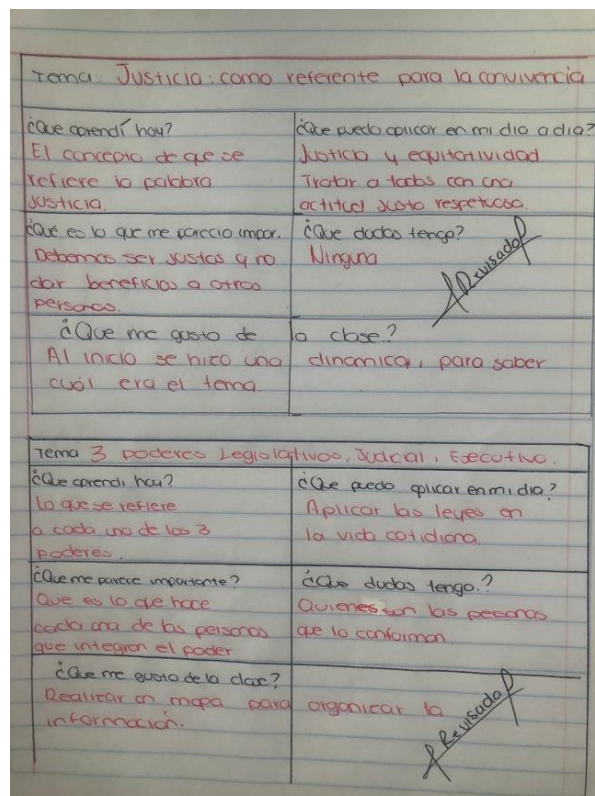 Tema: Justicia: como referente para la convivencia
¿Que aprendí hoy?
El concepto de que se
refiere la palabra
justicia.
¿Que puedo aplicar en mi dia a dia?
Justicia y equitatividad.
Tratar a todos con una
actitud justa respetuosa.
¿Que es lo que me parecio impor.
Debemos ser justas y no
dar beneficios a otras
personas.
¿Que dudas tengo?
Ninguna
Revisado
¿Que me gusto de la clase?
Al inicio se hizo una dinamica, para saber
cuál era el tema.
Tema 3 poderes Legislativos, Judicial, Ejecutivo.
¿Que aprendi hoy?
Lo que se refiere
a cada uno de los 3
poderes.
¿Que puedo aplicar en mi dia?
Aplicar las leyes en
la vida cotidiana.
¿Que me parece importante?
Que es lo que hace
cada una de las personas
que integran el poder
¿Que dudas tengo?
Quienes son las personas
que lo conforman
¿Que me gusto de la clase?
Realizar un mapa para organizar la
información.
Revisado